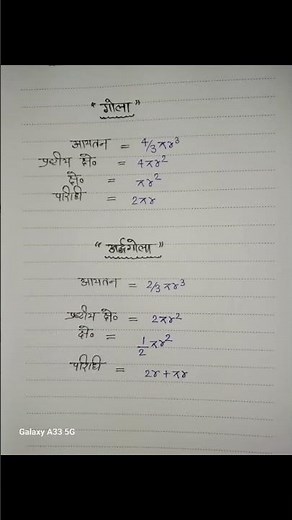 "गोला"
आयतन = 4/3 πr³
पृष्ठीय क्षे० = 4πr²
क्षे० = πr²
परिधि = 2πr
"अर्द्धगोला"
आयतन = 2/3 πr³
पृष्ठीय क्षे० = 2πr²
क्षे० = 1/2 πr²
परिधि = 2r + πr
Galaxy A33 5G